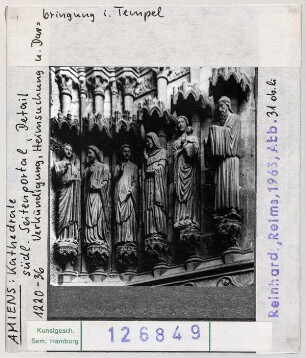 AMIENS: Kathedrale
südl. Seitenportal Detail
1220-36 Verkündigung, Heimsuchung u. Dar=
bringung i. Tempel
Reinhardt, Reims, 1963, Abb. 31 ob. li
Kunstgesch.
Sem. Hamburg
126849